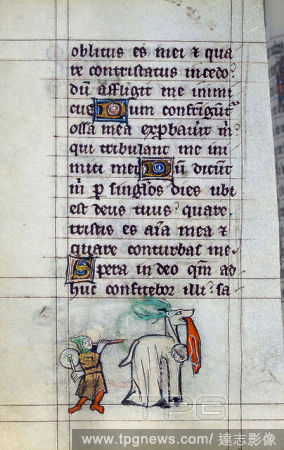 oblitus es mei et qua
re contristatus incedo
dū affligit me inimi
cus Dum confringūt
ossa mea exprobaverūt m
qui tribulant me ini
mici mei Dū dicūt
m p singlos dies ubi
est deus tuus? quare
tristis es aīa mea et
quare conturbas me
Spera in deo qm̄ ad
huc confitebor illi: sa
TPG
www.tpgnews.com/達志影像